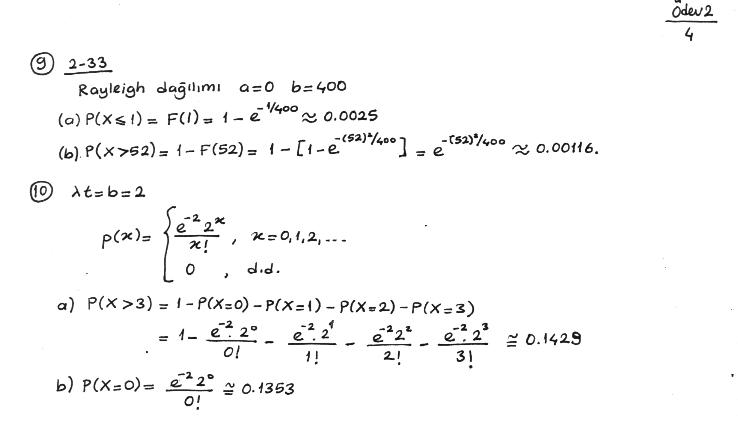 Ödev2
4
⑨ 2-33
Rayleigh dağılımı a=0 b=400
(a) P(X≤1) = F(1) = 1 - e^{-1/400} ≈ 0.0025
(b). P(X>52) = 1 - F(52) = 1 - [1 - e^{-(52)²/400}] = e^{-(52)²/400} ≈ 0.00116.
⑩ λt=b=2
p(x)= { e^{-2} 2^x / x! , x=0,1,2,...
0 , d.d.
a) P(X>3) = 1 - P(X=0) - P(X=1) - P(X=2) - P(X=3)
= 1 - e^{-2}.2^0 / 0! - e^{-2}.2^1 / 1! - e^{-2}2^2 / 2! - e^{-2}.2^3 / 3! ≅ 0.1429
b) P(X=0) = e^{-2}2^0 / 0! ≅ 0.1353